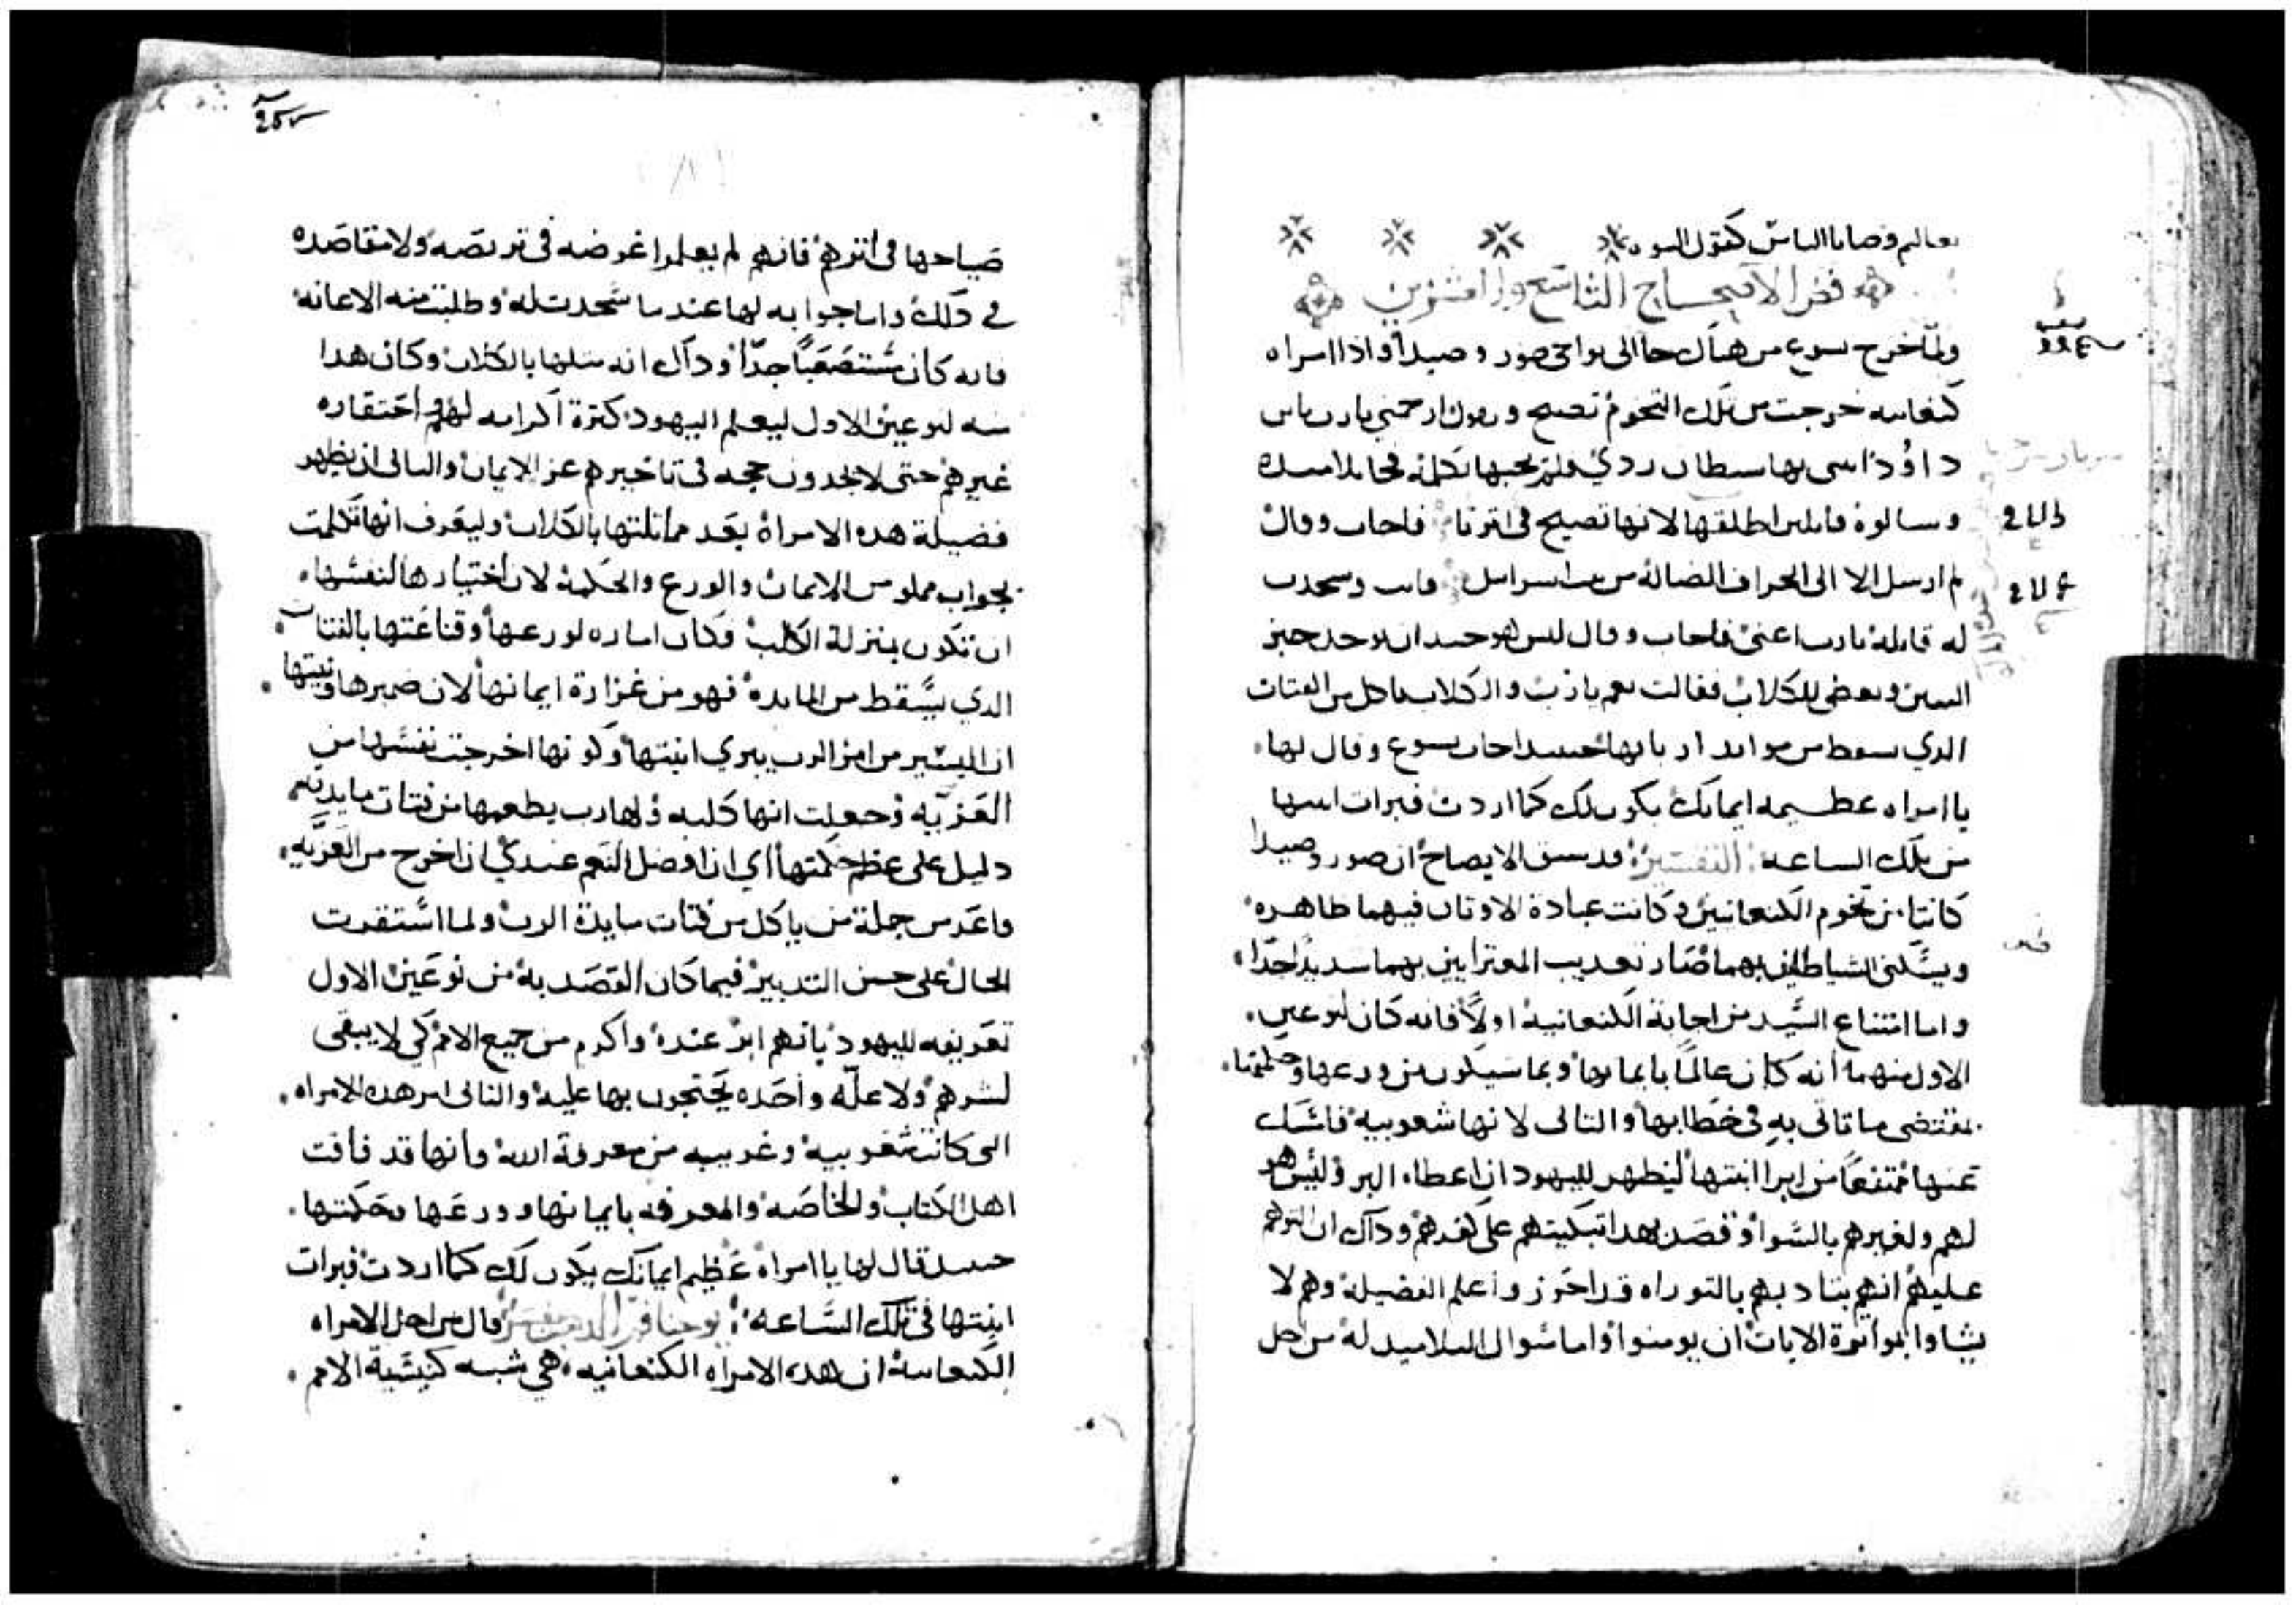 تعاليم وصايا الناس كقول النبوه
فص الاصحاح التاسع والعشرين
ولما خرج يسوع من هناك جا الى نواحي صور وصيدا واذا امراه
كنعانيه خرجت من تلك التخوم تصيح وتقول ارحمني يا رب يا بن
داوود ابنتي بها شيطان ردي فلم يجبها بكلمة فجا تلاميده
وسالوه قايلين اطلقها لانها تصيح في اترنا فاجاب وقال
لم ارسل الا الى الخراف الضالة من بيت اسراييل فاتت وسجدت
له قايلة يا رب اعني فاجاب وقال ليس هو جيد ان يوخد خبز
البنين ويعطى للكلاب فقالت نعم يا رب والكلاب تاكل من الفتات
الدي يسقط من موايد اربابها حينيد اجاب يسوع وقال لها
يا امراه عظيمه ايمانك يكون لك كما اردت فبرات ابنتها
من تلك الساعه التفسير قد سبق الايضاح ان صور وصيدا
كانتا من تخوم الكنعانيين وكانت عبادة الاوتان فيهما ظاهره
ويسكنى الشياطين بهما صار تعديب المعترايين بهما شديدا جدا
واما امتناع السيد من اجابة الكنعانية اولا فانه كان لنوعين
الاول منهما انه كان عالما بايمانها وبما سيكون من ورعها وحكمتها
بمقتضى ما تاتي به في خطابها والتاني لانها شعوبيه فامسك
عنها ممتنعا من ابرا ابنتها ليظهر لليهود ان اعطاه البر وليس هو
لهم ولغيرهم بالسوا وقصد بهدا تبكيتهم على كفرهم ودلك ان
عليهم انهم بتادبهم بالتوراه قد احوز واعلم الفضيلة وهم لا
يشاوا بمواترة الايات ان يومنوا واما سوال التلاميد له من اجل
صياحها في اترهم فانهم لم يعلموا غرضه في تربصه ولا مقاصده
في دلك واما جوابه لها عند ما سجدت له وطلبت منه الاعانه
فانه كان مستصعبا جدا ودلك انه متلها بالكلاب وكان هدا
منه لنوعين الاول ليعلم اليهود كترة اكرامه لهم واحتقاره
غيرهم حتى لا يجدون حجه في تاخيرهم عن الايمان والتاني ان يظهر
فضيلة هده الامراة بعد مماتلتها بالكلاب وليعرف انها تكلمت
بجواب مملو من الايمان والورع والحكمة لان اختيارها لنفسها
ان تكون بمنزلة الكلب فكان اشاره لورعها وقناعتها بالفتات
الدي يسقط من المايده فهو من غزارة ايمانها لان ضميرها ونيتها
ان اليسير من امر الرب يبري ابنتها وكونها اخرجت نفسها من
العزيه وجعلت انها كلبه ولها رب يطعمها من فتات مايدته
دليل على عظم حكمتها اي ان افضل النعم عندي ان اخرج من العزيه
واعد من جملة من ياكل من فتات مايدة الرب ولما استقرت
الحال على حسن التدبير فيما كان القصد به من نوعين الاول
تعريفه لليهود بانهم ابر عنده واكرم من جميع الامم كي لا يبقى
لشرهم ولا علة واحده يحتجون بها عليه والتاني امر هده الامراه
التي كانت شعوبيه وغريبه من معرفة الله وانها قد فاقت
اهل الكتاب والخاصه والمعرفه بايمانها وورعها وحكمتها
حينيد قال لها يا امراة عظيم ايمانك يكون لك كما اردت فبرات
ابنتها في تلك الساعه يوحنا فم الدهب يفسر قال من اجل الامراه
الكنعانية ان هده الامراه الكنعانيه هي شبه كنيسة الامم